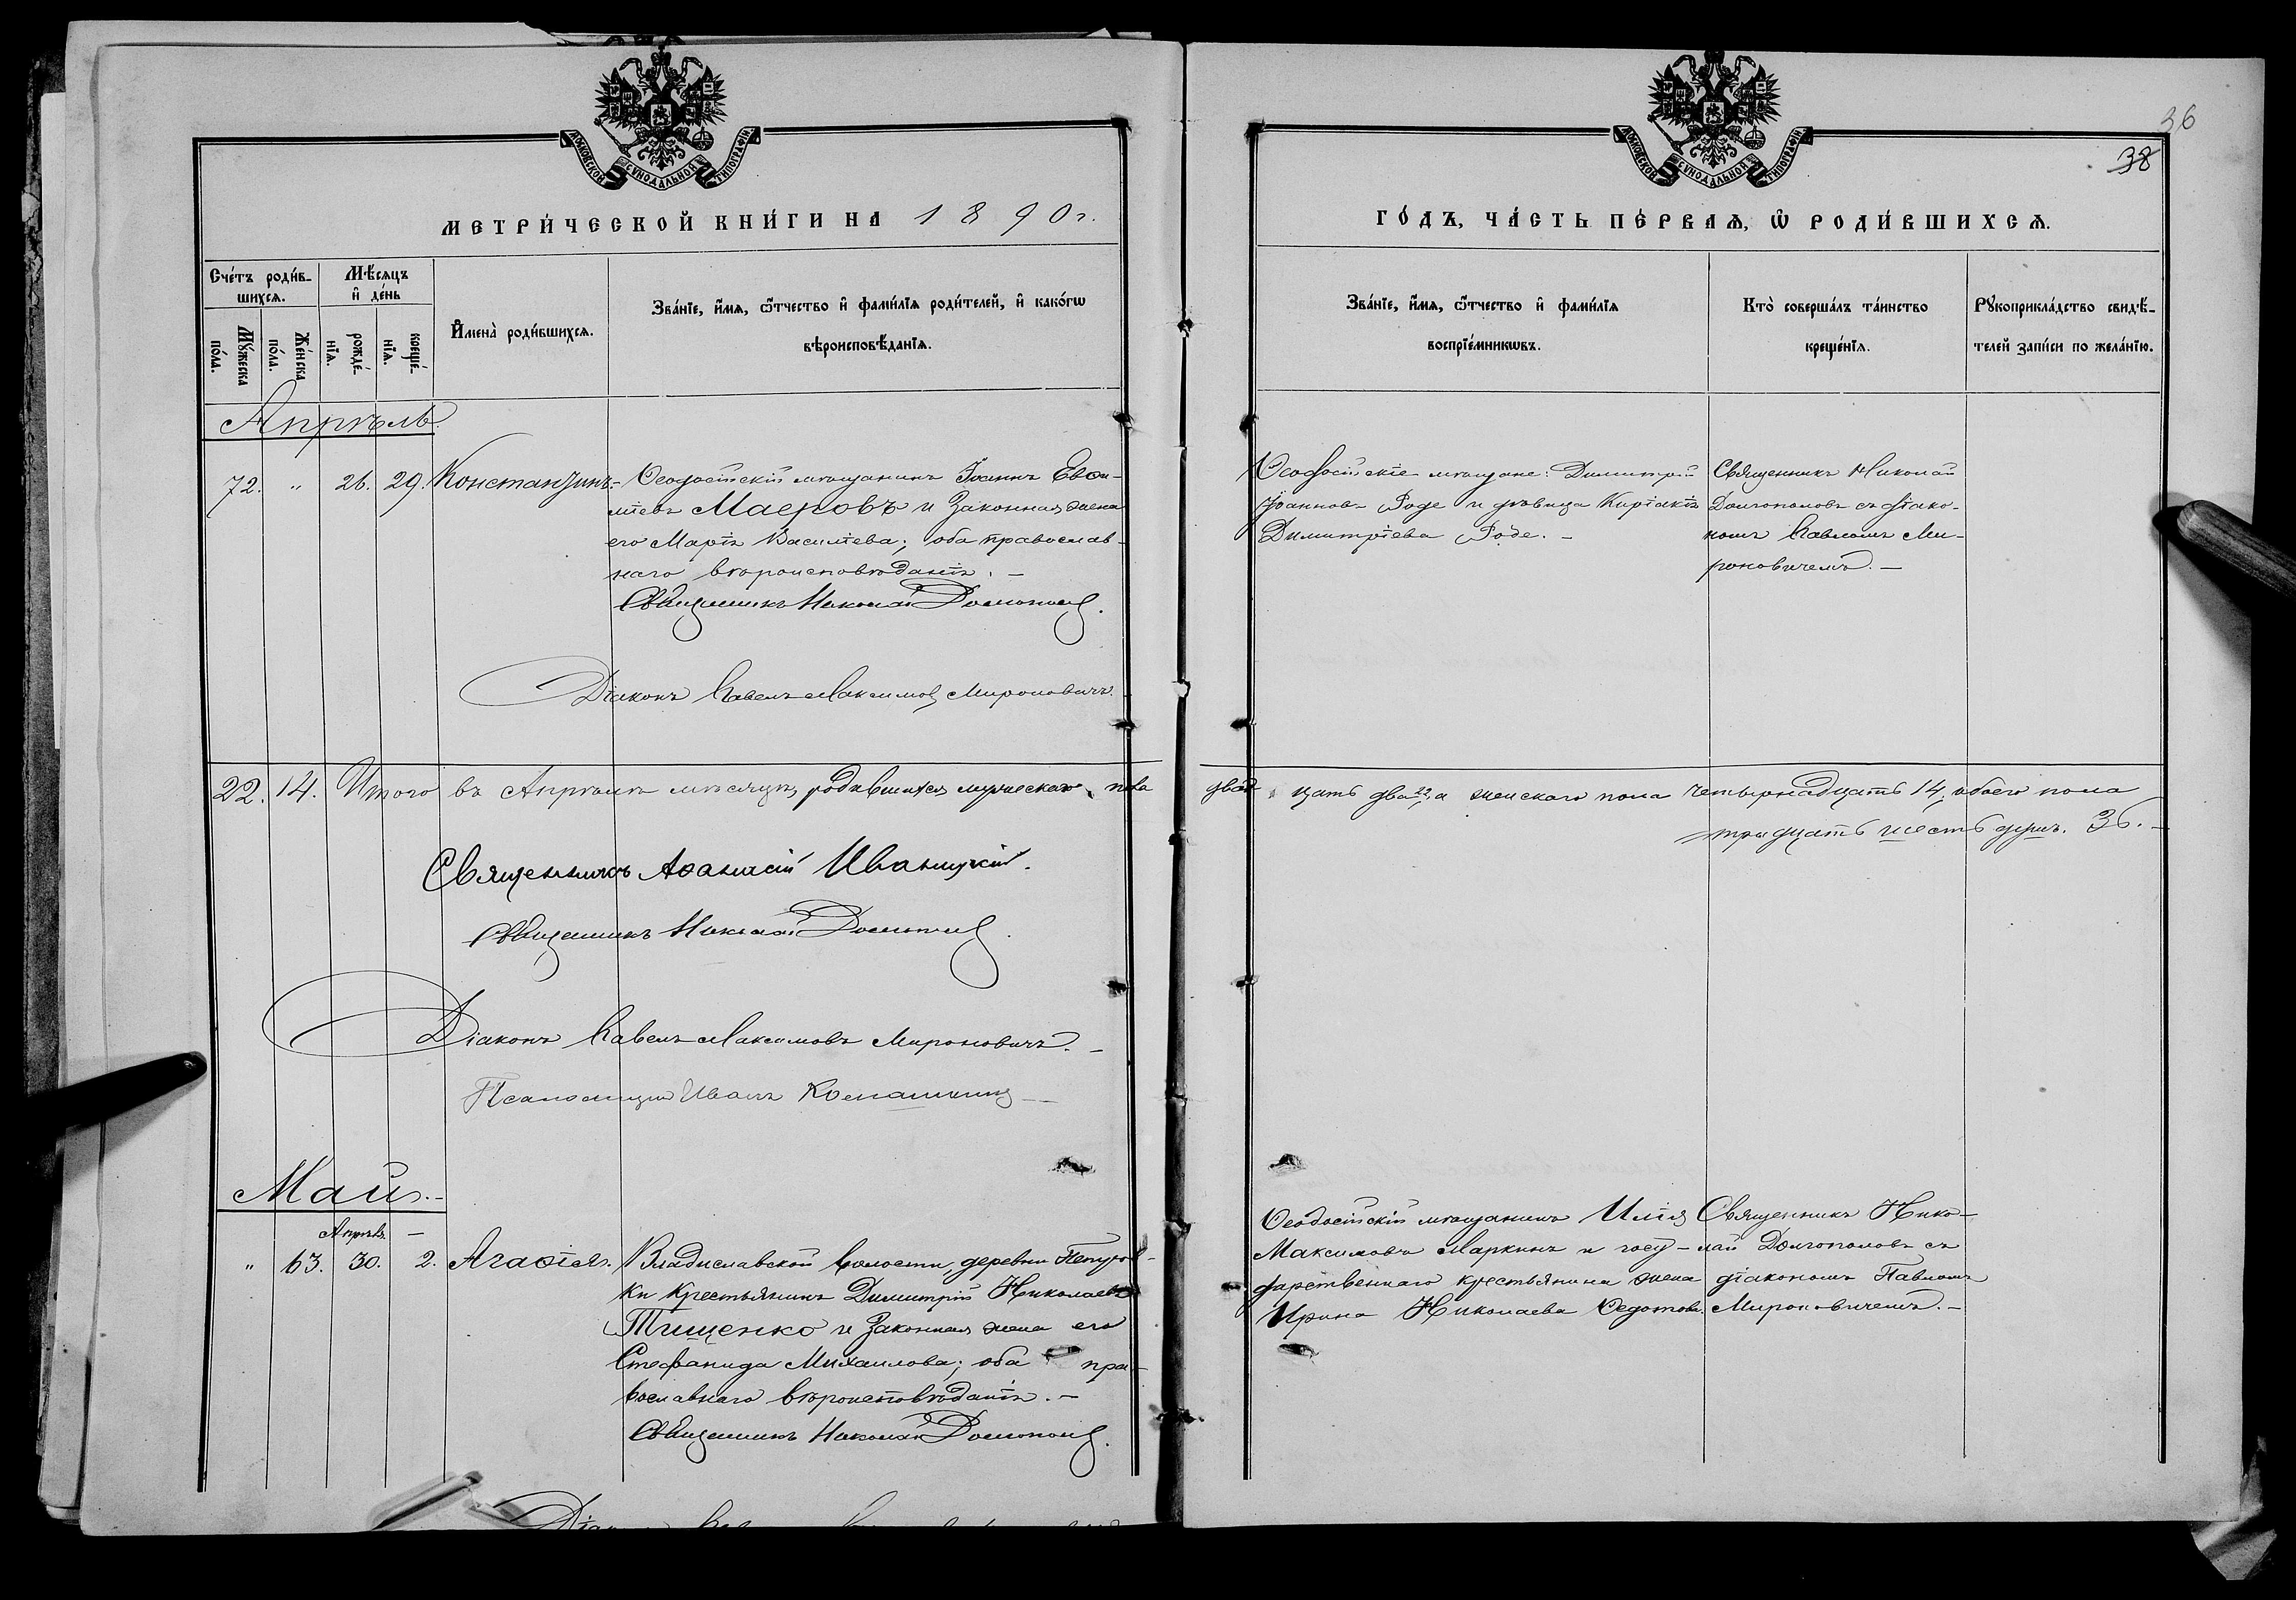 МОСКОВСКОЙ СѴНОДАЛЬНОЙ ТИПОГРАФІИ
МЕТРИ́ЧЕСКОЙ КНИ́ГИ НА 1890 г.
Сче́тъ роди́в-
шихсѧ.
Мѣ́сѧцъ
и҆ де́нь
Мꙋ́жеска по́ла.
Же́нска по́ла.
рожде́-нїѧ.
креще́-нїѧ.
И҆мена̀ роди́вшихсѧ.
Зва́нїе, и҆́мѧ, ѻ҆́тчество и҆ фами́лїѧ роди́телей, и҆ како́гѡ
вѣроисповѣ́данїѧ.
Апрѣль.
72. " 26. 29. Константинъ.- Ѳеодосійскій мѣщанинъ Іоаннъ Евѳи-
міевъ Маеровъ и законная жена
его Марія Василіева; оба православ-
наго вѣроисповѣданія. —
Священникъ Николай Долгополовъ.
Діаконъ Павелъ Максимовъ Мироновичъ.
22. 14. Итого въ Апрѣлѣ мѣсяцѣ родившихся мужескаго пола
Священникъ Аѳанасій Иваницкій.
Священникъ Николай Долгополовъ.
Діаконъ Павелъ Максимовъ Мироновичъ. —
Псаломщикъ Иванъ
Май.-
Апрѣль —
" 63. 30. 2. Агаѳія. Владиславской волости, деревни Петров-
ки крестьянинъ Димитрій Николаевъ
Тищенко и законная жена его
Стефанида Михаилова; оба пра-
вославнаго вѣроисповѣданія. —
Священникъ Николай Долгополовъ.
36
38
МОСКОВСКОЙ СѴНОДАЛЬНОЙ ТИПОГРАФІИ
ГО́ДЪ, ЧА́СТЬ ПЕ́РВАѦ, Ѽ РОДИ́ВШИХСѦ.
Зва́нїе, и҆́мѧ, ѻ҆́тчество и҆ фами́лїѧ
воспрїе́мникѡвъ.
Кто̀ соверша́лъ та́инство
креще́нїѧ.
Рꙋкоприкла́дство свидѣ́-
телей за́писи по жела́нїю.
Ѳеодосійскіе мѣщане: Димитрій
Іоанновъ Роде и дѣвица Киріакія
Димитріева Роде. -
Священникъ Николай
Долгополовъ съ діако-
номъ Павломъ Ми-
роновичемъ. —
двад- цать два 22, а женскаго пола четырнадцать 14; обоего пола
тридцать шесть душъ. 36. —
Ѳеодосійскій мѣщанинъ Илія
Максимовъ Маркинъ и госу-
дарственнаго крестьянина жена
Ирина Николаева Ѳедотова.
Священникъ Нико-
лай Долгополовъ съ
діакономъ Павломъ
Мироновичемъ. —